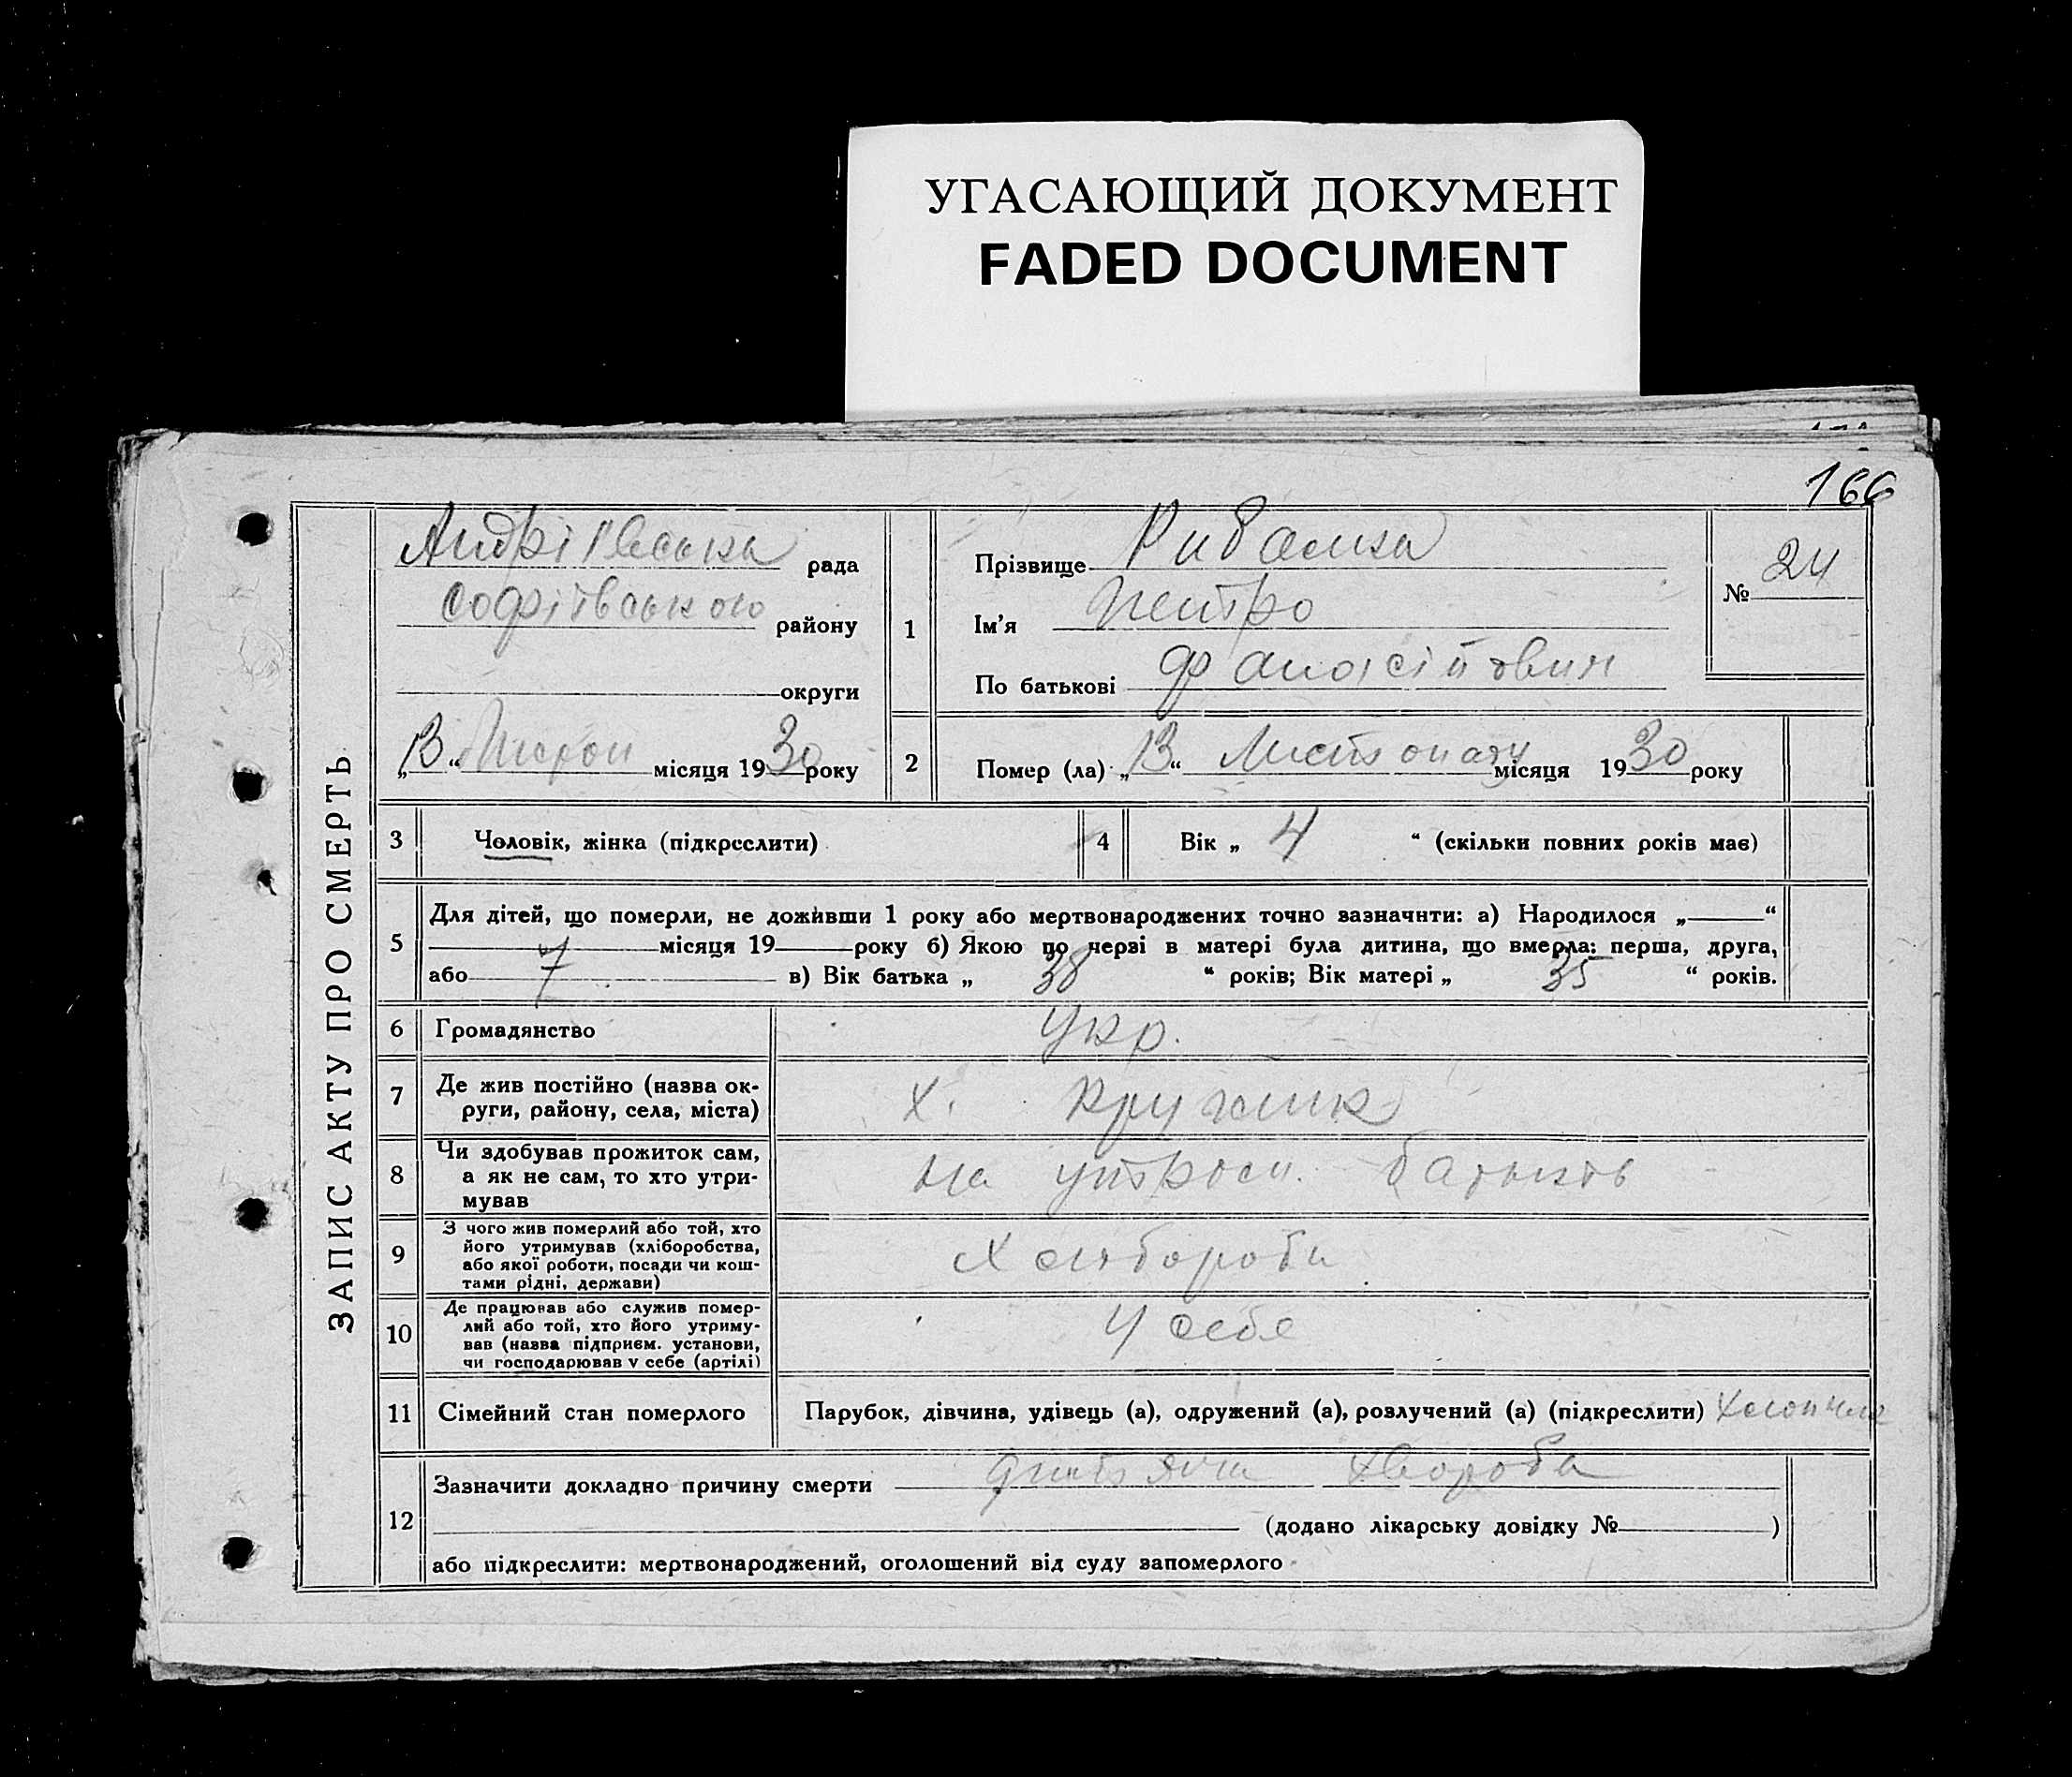 УГАСАЮЩИЙ ДОКУМЕНТ
FADED DOCUMENT
166
ЗАПИС АКТУ ПРО СМЕРТЬ
Андріївська рада
Софіївського району
округи
„13“ Листоп місяця 1930 року
1
Прізвище Рибалка
Ім'я Петро
По батькові
№ 24
2
Помер (ла) „13“ Листопаду місяця 1930 року
3
Чоловік, жінка (підкреслити)
4
Вік „ 4 “ (скільки повних років має)
5
Для дітей, що померли, не доживши 1 року або мертвонароджених точно зазначити: а) Народилося „ “
місяця 19 року б) Якою по черзі в матері була дитина, що вмерла: перша, друга,
або 7 в) Вік батька „ 38 “ років; Вік матері „ 35 “ років.
6
Громадянство
Укр.
7
Де жив постійно (назва ок-
руги, району, села, міста)
х. Кружик
8
Чи здобував прожиток сам,
а як не сам, то хто утри-
мував
на утрим. батьків
9
З чого жив померлий або той, хто
його утримував (хліборобства,
або якої роботи, посади чи кош-
тами рідні, держави)
Хліборобст
10
Де працював або служив помер-
лий або той, хто його утриму-
вав (назва підприєм. установи,
чи господарював у себе (артілі)
У себе
11
Сімейний стан померлого
Парубок, дівчина, удівець (а), одружений (а), розлучений (а) (підкреслити) Хлопчик
12
Зазначити докладно причину смерти дитяча хвороба
(додано лікарську довідку № )
або підкреслити: мертвонароджений, оголошений від суду запомерлого